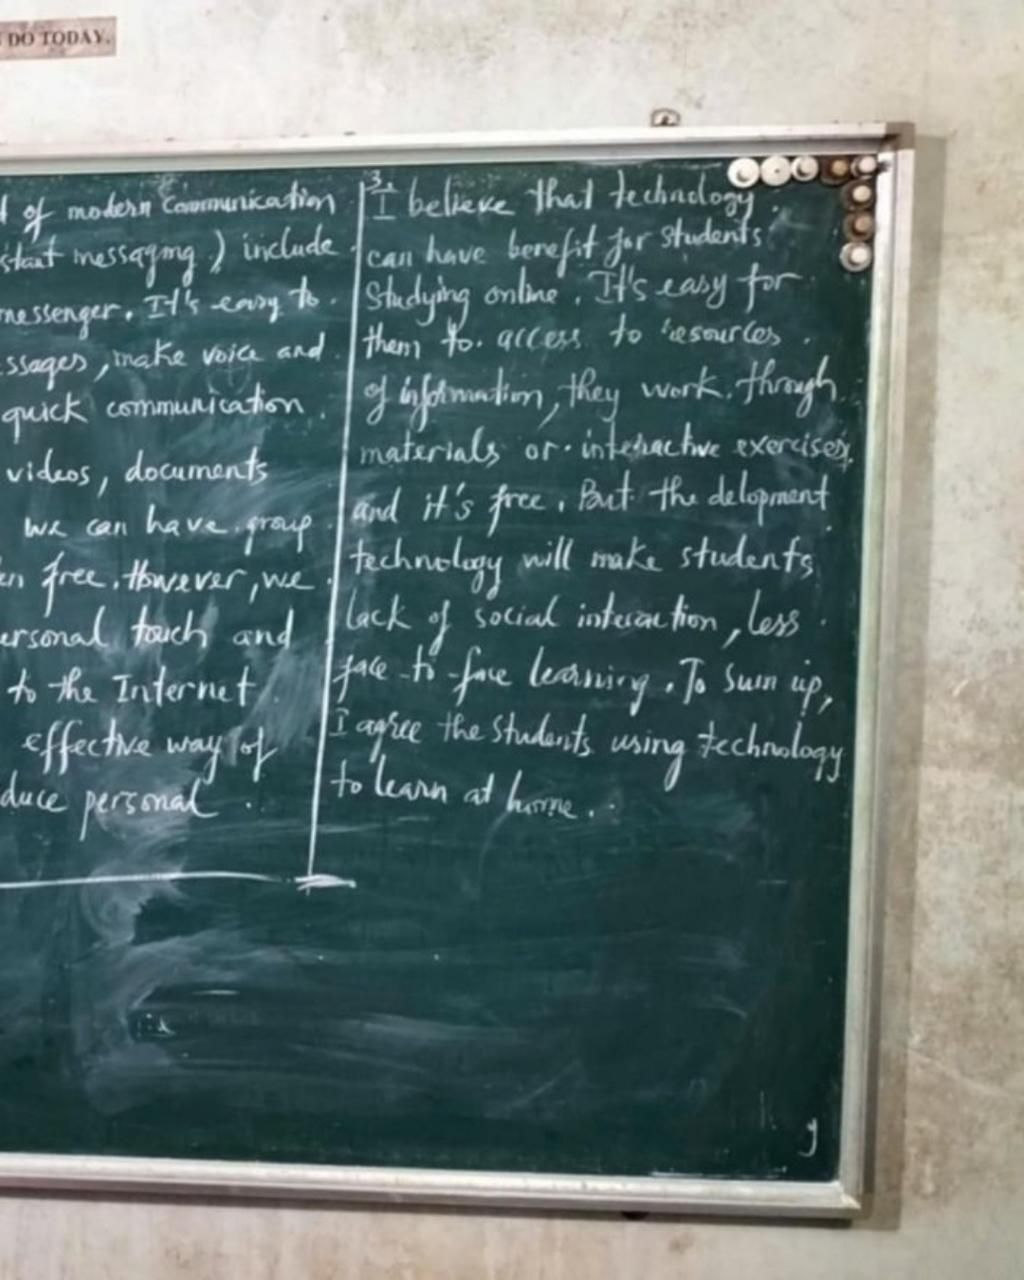 DO TODAY.
of modern communication
messaging) include
messenger. It's easy to
ssages, make voice and
quick communication
videos, documents
we can have group
free. However, we
ersonal touch and
to the Internet
effective way of
duce personal
3.
I believe that technology
can have benefit for students
studying online. It's easy for
them to access to resources
of information, they work through
materials or interactive exercises,
and it's free. But the delopment
technology will make students
lack of social interaction, less
face-to-face learning. To sum up,
I agree the students using technology
to learn at home.
g